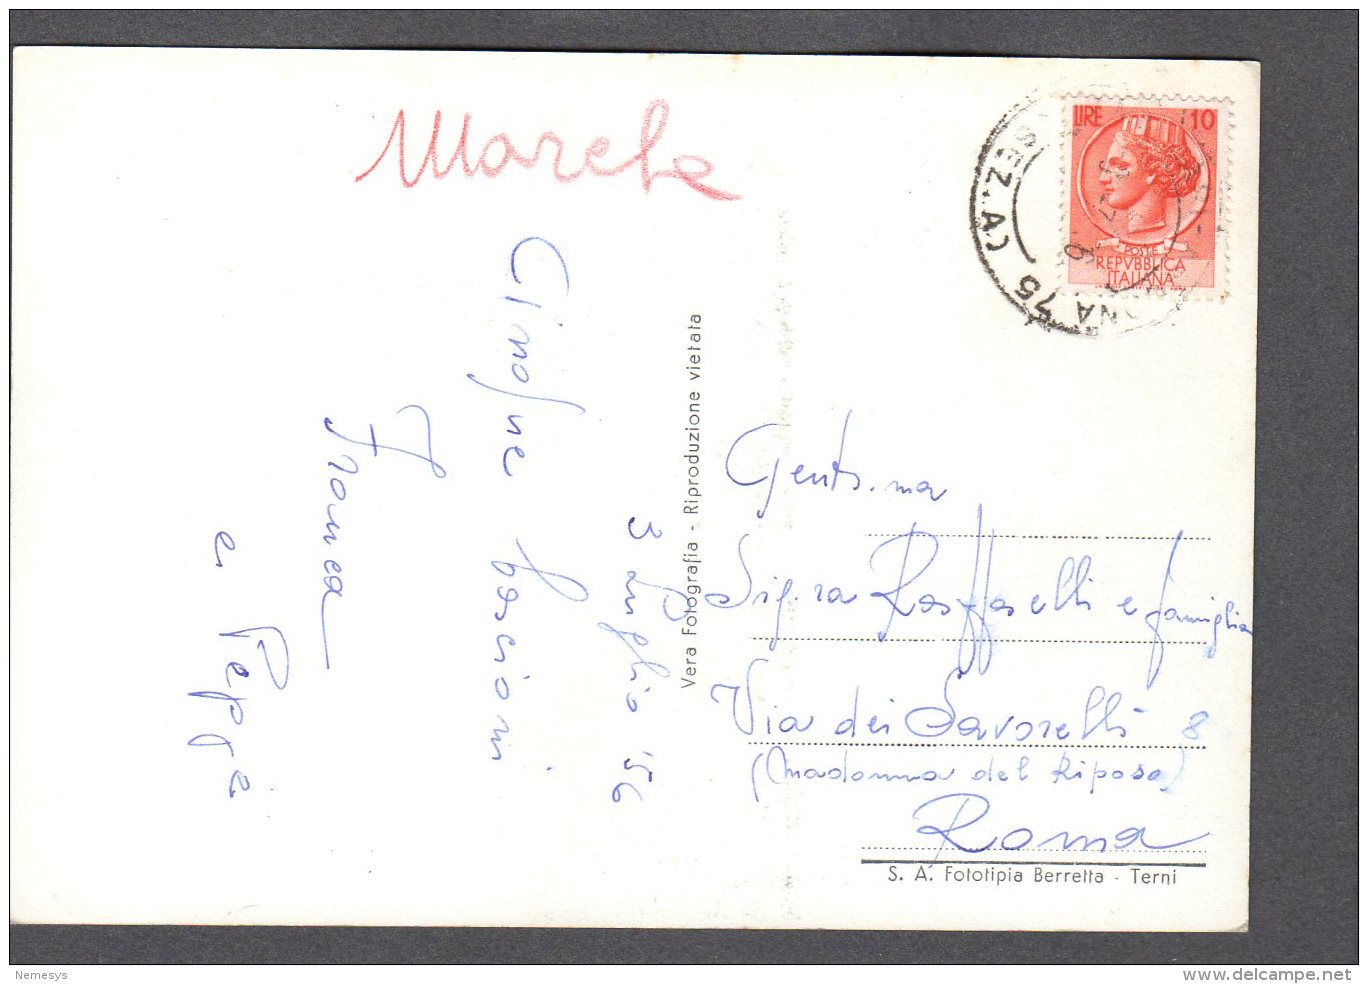 LIRE 10
POSTE
REPVBBLICA
ITALIANA
75
SEZ. A)
3 luglio '56
Franca
e Peppe
Vera Fotografia - Riproduzione vietata
Gent.ma
Sig.ra Raffaelli e famiglia
Via dei Savorelli 8
(Madonna del Riposo)
Roma
S. A. Fototipia Berretta - Terni
Nemesys
www.delcampe.net